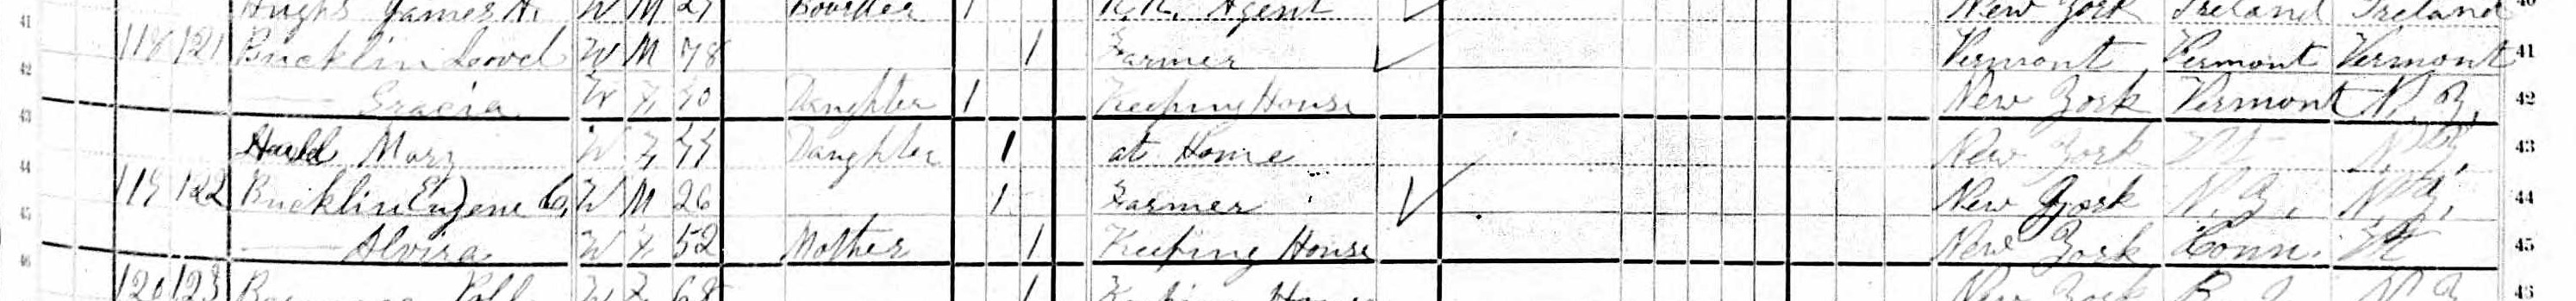 41 James H. W M 27 Boarder 1 R.R. Agent New York Ireland Ireland 40
42 118 121 Bucklin W M 78 1 Farmer Vermont Vermont Vermont 41
43 —— Gracia W F Daughter 1 Keeping House New York Vermont N.Y. 42
44 Mary W F Daughter 1 at Home New York Vt N.Y. 43
45 119 122 Bucklin Eugene C. W M 26 1 Farmer New York N.Y. N.Y. 44
46 —— Alvira W F 52 Mother 1 Keeping House New York Conn. Vt 45
120 123 W F 68 1 New York R. I. N.Y. 46